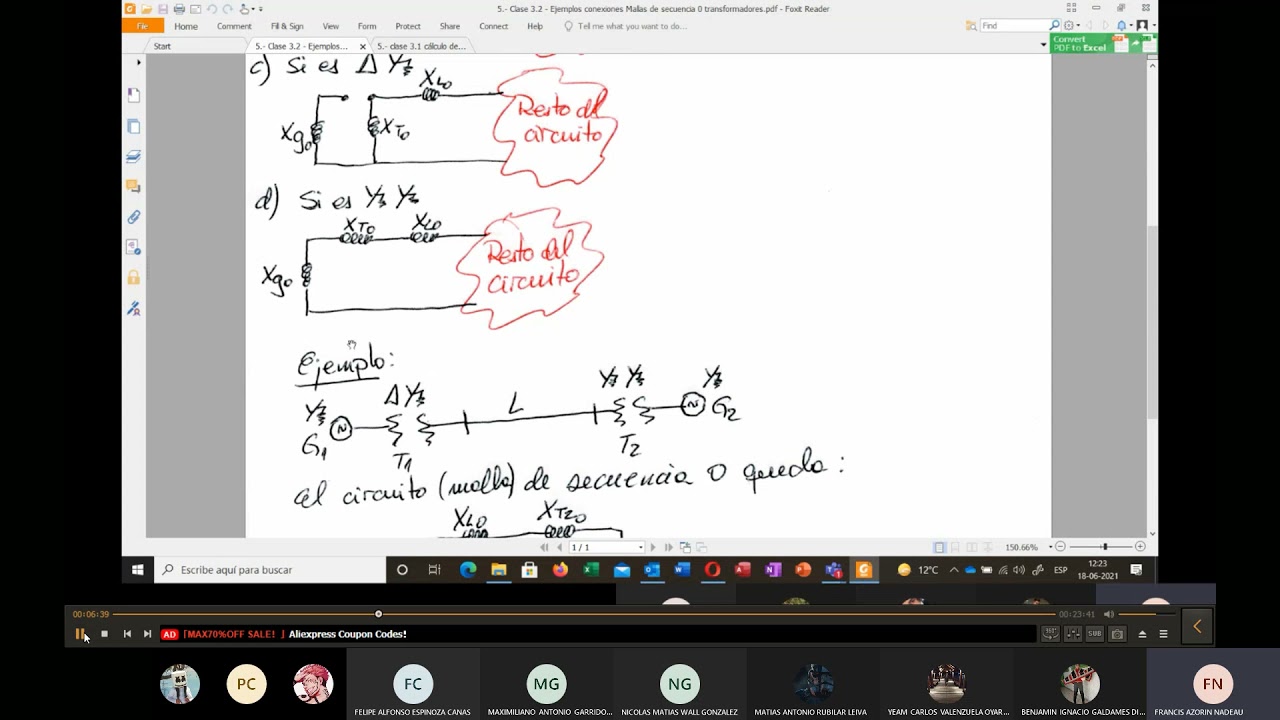 5.- Clase 3.2 - Ejemplos conexiones Mallas de secuencia 0 transformadores.pdf - Foxit Reader
File Home Comment Fill & Sign View Form Protect Share Connect Help Tell me what you want to do... Find
Start 5.- Clase 3.2 - Ejemplos... 5.- clase 3.1 cálculo de... Convert
PDF to Excel
c) Si es Δ Y
XL0
Xg0 XT0 Resto del
circuito
d) Si es Y Y
XT0 XL0
Xg0 Resto del
circuito
Ejemplo:
Y Δ Y L Y Y Y
G1 T1 T2 G2
el circuito (malla) de secuencia 0 queda:
XL0 XT20
1 / 1 150.66%
Escribe aquí para buscar 12°C ESP 12:23
18-06-2021
00:06:39 00:23:41
AD [MAX70%OFF SALE! ] Aliexpress Coupon Codes! SUB
PC FC MG NG FN
FELIPE ALFONSO ESPINOZA CANAS MAXIMILIANO ANTONIO GARRIDO... NICOLAS MATIAS WALL GONZALEZ MATIAS ANTONIO RUBILAR LEIVA YEAM CARLOS VALENZUELA OYAR... BENJAMIN IGNACIO GALDAMES DI... FRANCIS AZORIN NADEAU